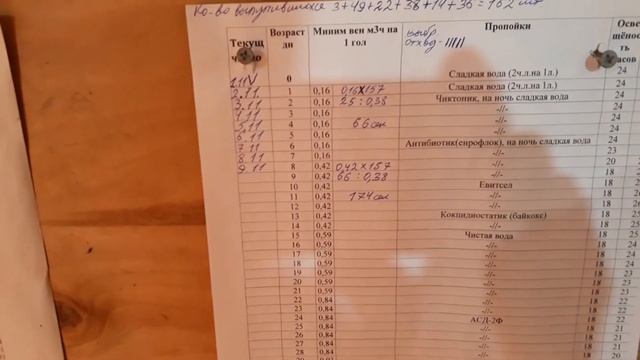 Кол-во вылупившихся 3+49+22+38+14+36=162 шт
Текущ число Возраст дн Миним вен м3ч на 1 гол Пропойки Освещённость часов
выбр отход - IIIII
1.11 0 Сладкая вода (2ч.л.на 1л.) 24
2.11 1 0,16 0,16х157 Сладкая вода (2ч.л.на 1л.) 24
3.11 2 0,16 25:0,38 Чиктоник, на ночь сладкая вода 24
4.11 3 0,16 -//- 24
5.11 4 0,16 66 см -//- 24
6.11 5 0,16 -//- 24
7.11 6 0,16 Антибиотик(енрофлок), на ночь сладкая вода 24
8.11 7 0,16 -//- 23
9.11 8 0,42 0,42х157 -//- 20
9 0,42 66:0,38 -//- 18
10 0,42 Евитсел 18
11 0,42 174 см -//- 18
12 0,42 -//- 18
13 0,42 Кокцидиостатик (байкокс) 18
14 0,42 -//- 18
15 0,59 Чистая вода 18
16 0,59 -//- 18 24
17 0,59 -//- 18 24
18 0,59 -//- 18 23
19 0,59 -//- 18 23
20 0,59 -//- 18 23
21 0,59 -//- 18 23
22 0,84 -//- 18 22
23 0,84 -//- 18 22
24 0,84 АСД-2Ф 18 22
25 0,84 -//- 18 21
26 0,84 -//- 18 21
27 0,84 -//- 18 21
28 0,84 -//- 18 21